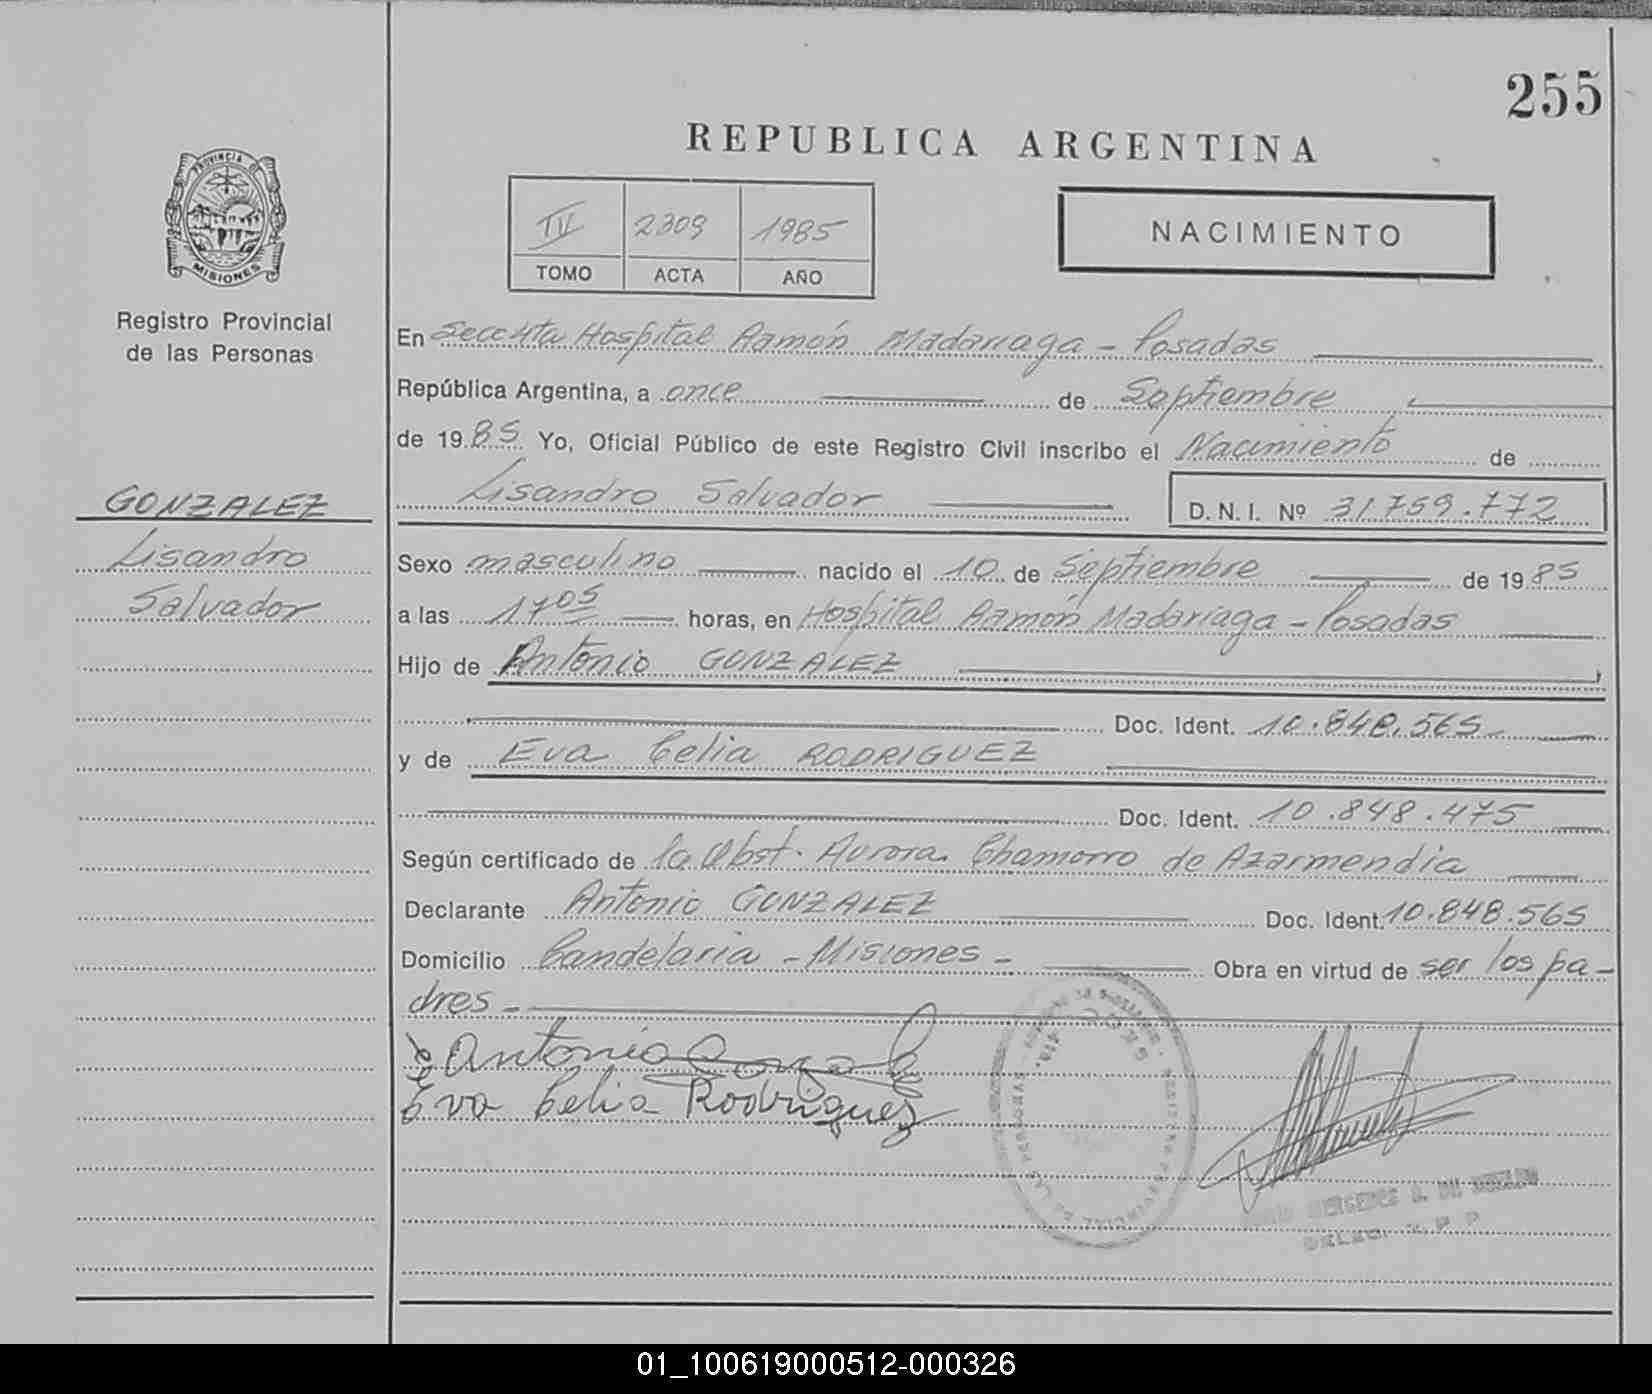 255
REPUBLICA ARGENTINA
IV 2309 1985
TOMO ACTA AÑO
NACIMIENTO
PROVINCIA DE
MISIONES
Registro Provincial
de las Personas
GONZALEZ
Lisandro
Salvador
En Secc 4ta Hospital Ramón Madariaga - Posadas
República Argentina, a once de Septiembre
de 1985 Yo, Oficial Público de este Registro Civil inscribo el Nacimiento de
Lisandro Salvador D.N.I. Nº 31.759.772
Sexo masculino nacido el 10 de Septiembre de 1985
a las 17 05 horas, en Hospital Ramón Madariaga - Posadas
Hijo de Antonio GONZALEZ
Doc. Ident. 10.848.565
y de Eva Celia RODRIGUEZ
Doc. Ident. 10.848.475
Según certificado de la Obst. Aurora Chamorro de Azarmendia
Declarante Antonio GONZALEZ Doc. Ident. 10.848.565
Domicilio Candelaria - Misiones - Obra en virtud de ser los pa-
dres -
Antonio Gonzalez
Eva Celia Rodriguez
01_100619000512-000326